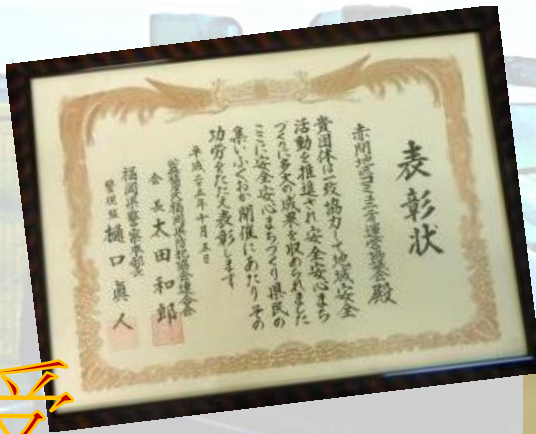 表彰状
赤間地区コミュニティ運営協議会殿
貴団体は一致協力して地域安全
活動を推進され安全安心まち
づくりに多大の成果を収められました
ここに安全安心まちづくり県民の
集いふくおか開催にあたりその
功労をたたえ表彰します
平成二十五年十月五日
公益社団法人福岡県防犯協会連合会
会長 太田和郎
福岡県警察本部長
警視監 樋口眞人
受